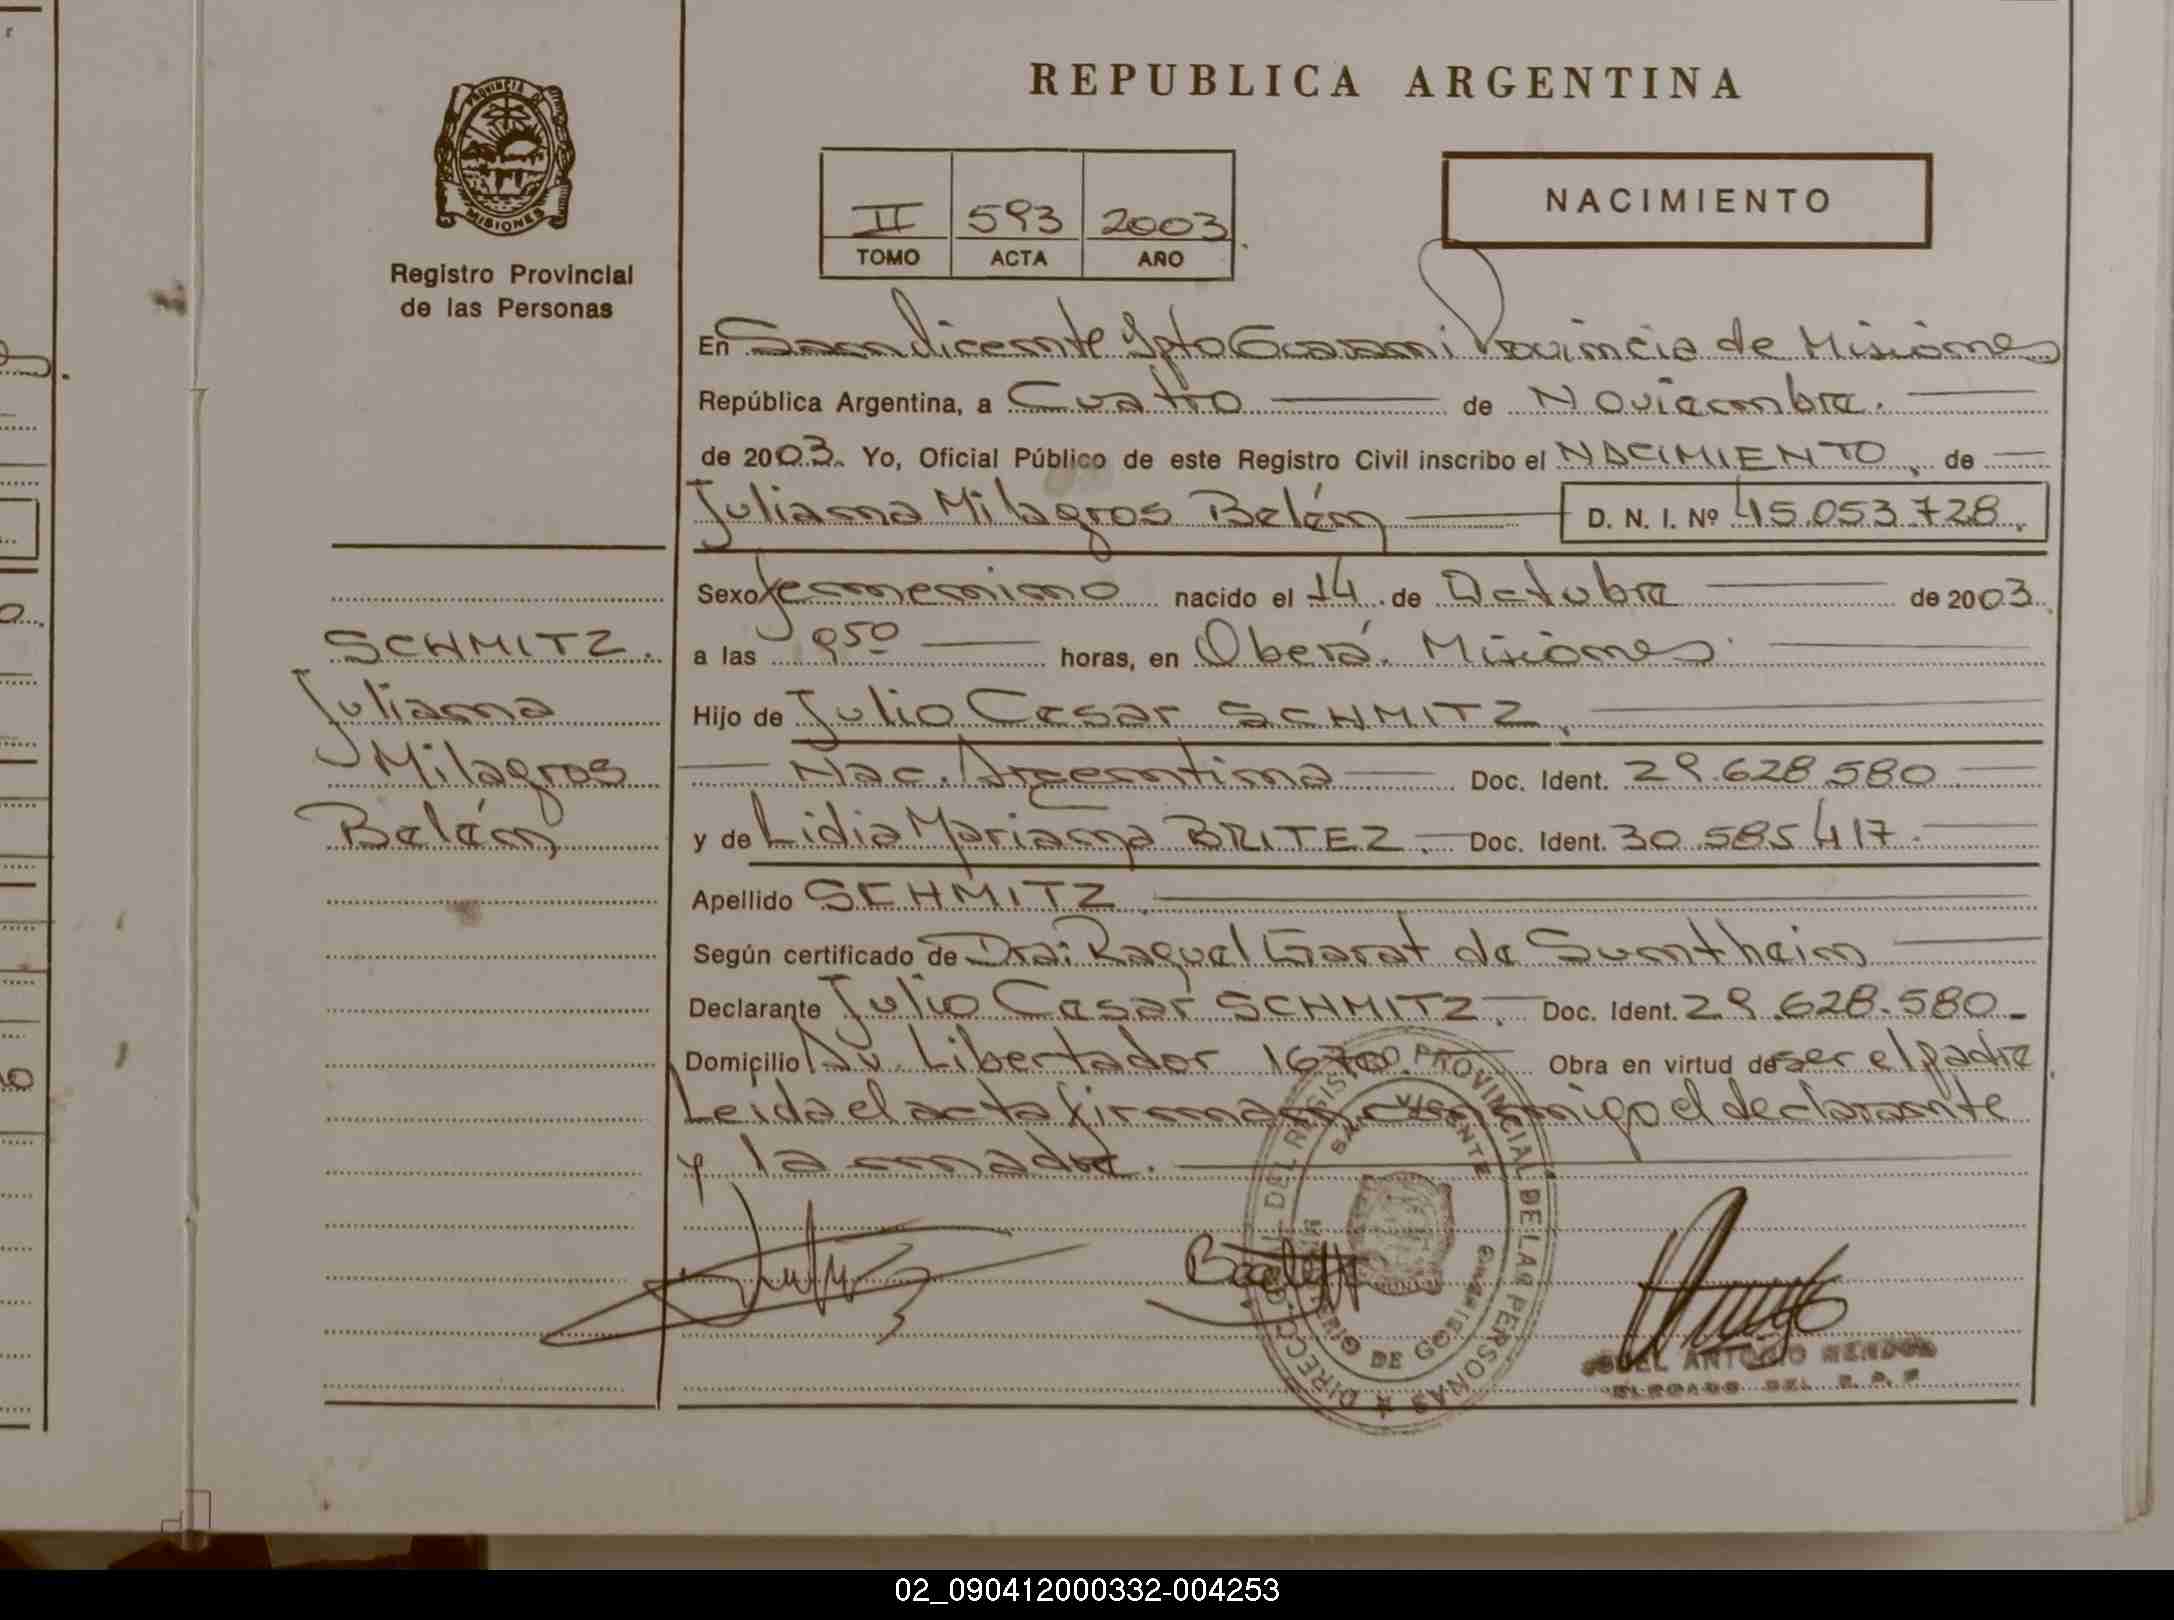 PROVINCIA DE
MISIONES
Registro Provincial
de las Personas
SCHMITZ.
Juliana
Milagros
Belén
REPUBLICA ARGENTINA
II 593 2003
TOMO ACTA AÑO
NACIMIENTO
En San Vicente Dpto Guarani Provincia de Misiones
República Argentina, a Cuatro de Noviembre.
de 2003. Yo, Oficial Público de este Registro Civil inscribo el NACIMIENTO, de
Juliana Milagros Belén D. N. I. Nº 45.053.728.
Sexo femenino nacido el 14 de Octubre de 2003.
a las 950 horas, en Oberá. Misiones.
Hijo de Julio Cesar SCHMITZ.
Nac. Argentina Doc. Ident. 29.628.580
y de Lidia Mariana BRITEZ. Doc. Ident. 30.585.417.
Apellido SCHMITZ.
Según certificado de Dra: Raquel Garat de Suntheim
Declarante Julio Cesar SCHMITZ. Doc. Ident. 29.628.580.
Domicilio Av. Libertador 1670. Obra en virtud de ser el padre
Leida el acta firman conmigo el declarante
y la madre.
DIRECC. GRAL. DEL REGISTRO PROVINCIAL DE LAS PERSONAS
SAN VICENTE
MINISTERIO DE GOBIERNO
ANTONIO
DELEGADO DEL R. P. P.
02_090412000332-004253